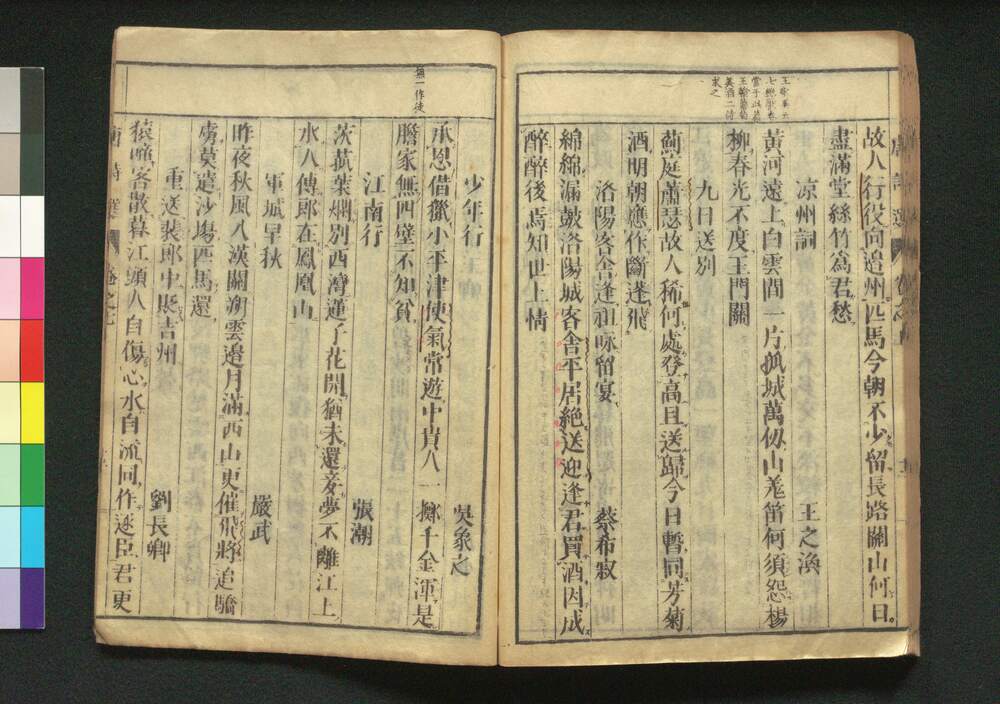 故人行役向邉州匹馬今朝不少留長路關山何日
盡滿堂絲竹爲君愁
凉州詞
王之渙
黃河遠上白雲間一片孤城萬仭山羌笛何須怨楊
柳春光不度玉門關
九日送別
薊庭蕭瑟故人稀何處登高且送歸今日暫同芳菊
酒明朝應作斷蓬飛
洛陽客舍逢祖咏留宴
蔡希寂
綿綿漏鼓洛陽城客舎平居絶送迎逢君買酒因成
醉醉後焉知世上情
無一作徒
少年行
吳象之
承恩借獵小平津使氣常遊中貴人一擲千金渾是
膽家無四壁不知貧
江南行
張潮
茨菰葉爛別西灣蓮子花開猶未還妾夢不離江上
水人傳郎在鳳凰山
軍城早秋
嚴武
昨夜秋風入漢關朔雲邊月滿西山更催飛將追驕
虜莫遣沙塲匹馬還
重送裴郎中貶吉州
劉長卿
猿啼客散暮江頭人自傷心水自流同作逐臣君更
唐詩選